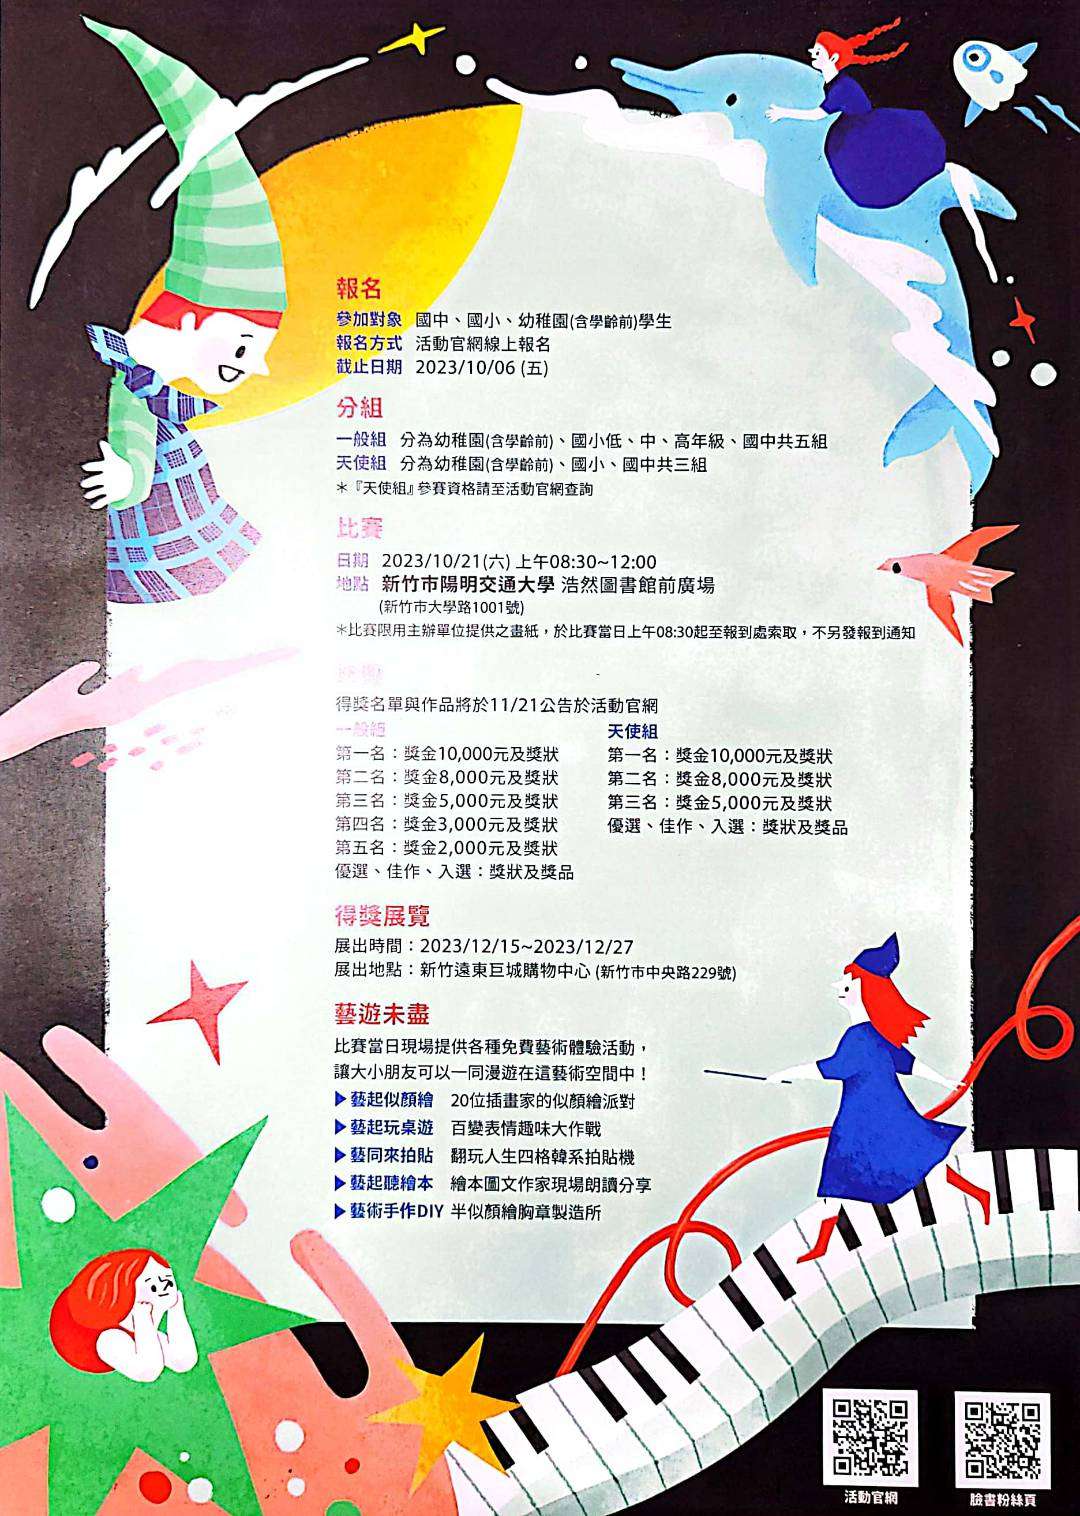 報名
參加對象 國中、國小、幼稚園(含學齡前)學生
報名方式 活動官網線上報名
截止日期 2023/10/06 (五)
分組
一般組 分為幼稚園(含學齡前)、國小低、中、高年級、國中共五組
天使組 分為幼稚園(含學齡前)、國小、國中共三組
＊『天使組』參賽資格請至活動官網查詢
比賽
日期 2023/10/21(六) 上午08:30~12:00
地點 新竹市陽明交通大學 浩然圖書館前廣場
(新竹市大學路1001號)
＊比賽限用主辦單位提供之畫紙，於比賽當日上午08:30起至報到處索取，不另發報到通知
得獎名單與作品將於11/21公告於活動官網
一般組
第一名：獎金10,000元及獎狀
第二名：獎金8,000元及獎狀
第三名：獎金5,000元及獎狀
第四名：獎金3,000元及獎狀
第五名：獎金2,000元及獎狀
優選、佳作、入選：獎狀及獎品
天使組
第一名：獎金10,000元及獎狀
第二名：獎金8,000元及獎狀
第三名：獎金5,000元及獎狀
優選、佳作、入選：獎狀及獎品
得獎展覽
展出時間：2023/12/15~2023/12/27
展出地點：新竹遠東巨城購物中心 (新竹市中央路229號)
藝遊未盡
比賽當日現場提供各種免費藝術體驗活動，
讓大小朋友可以一同漫遊在這藝術空間中！
▶藝起似顏繪 20位插畫家的似顏繪派對
▶藝起玩桌遊 百變表情趣味大作戰
▶藝同來拍貼 翻玩人生四格韓系拍貼機
▶藝起聽繪本 繪本圖文作家現場朗讀分享
▶藝術手作DIY 半似顏繪胸章製造所
活動官網
臉書粉絲頁